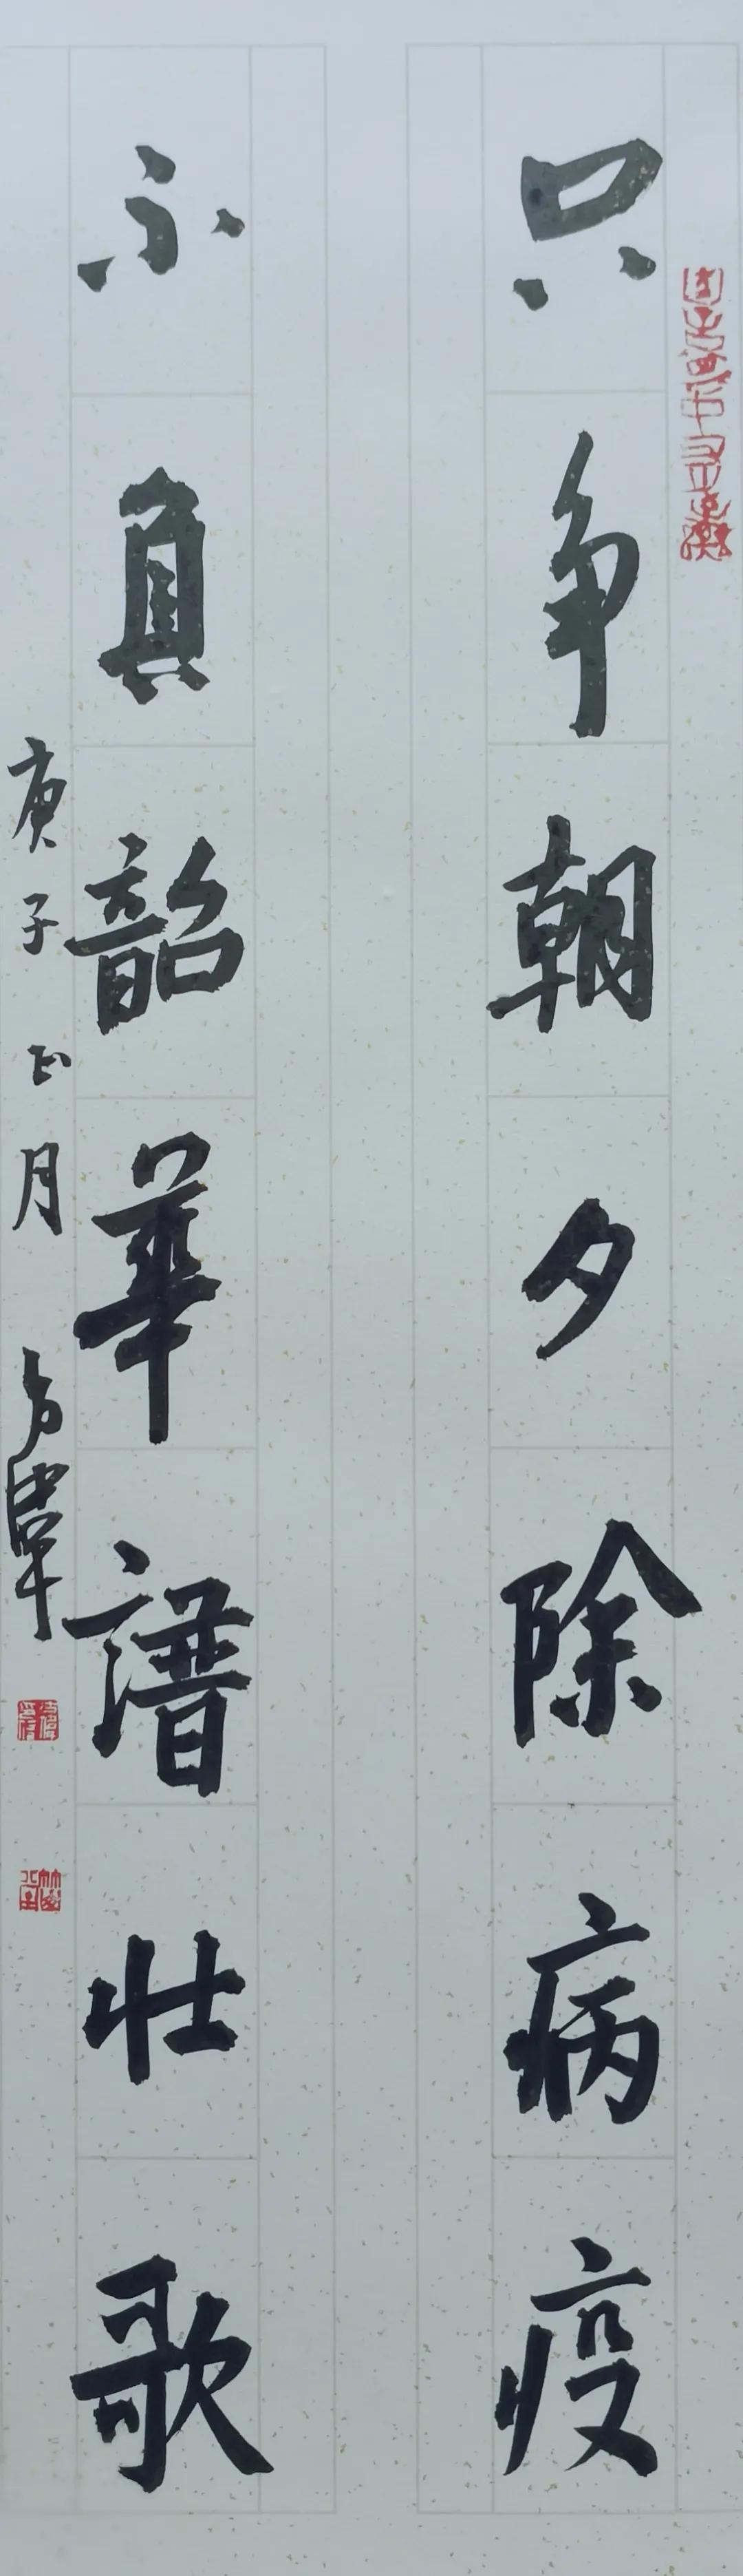 只争朝夕除病疫
不負韶華譜壮歌
庚子正月